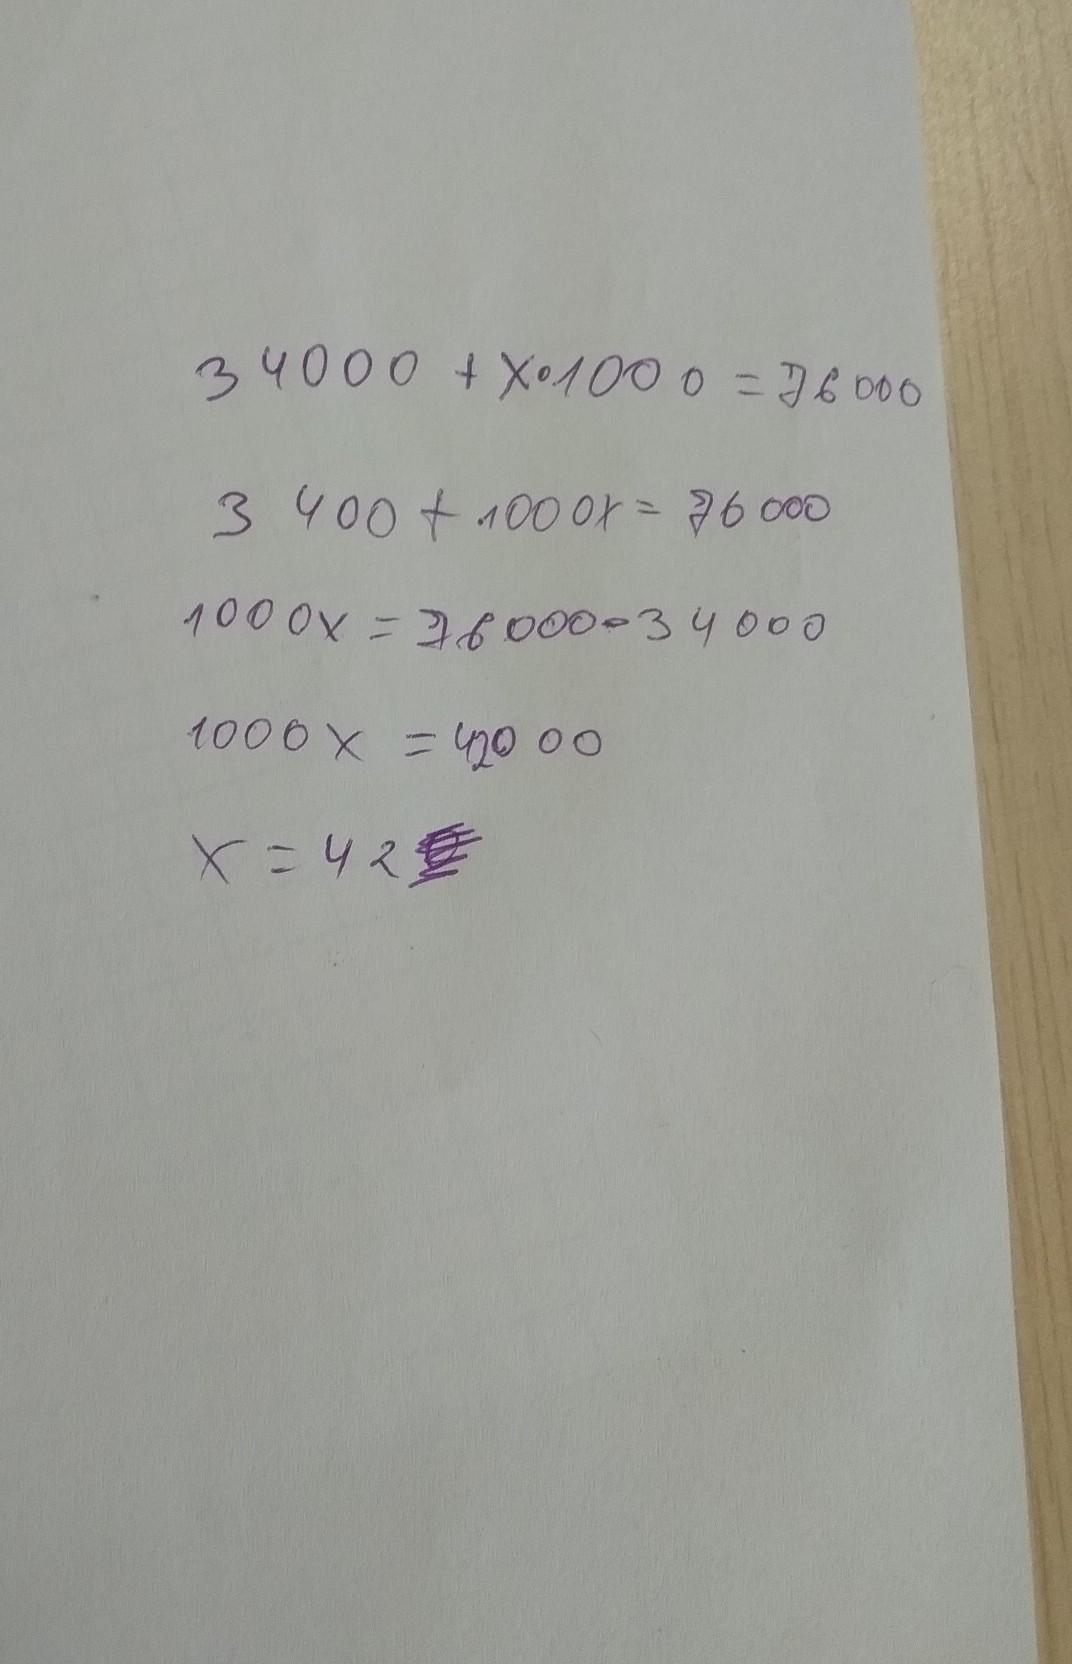 34000 + x•1000 = 76000
3 400 + 1000x = 76000
1000x = 76000-34000
1000x = 42000
x = 42